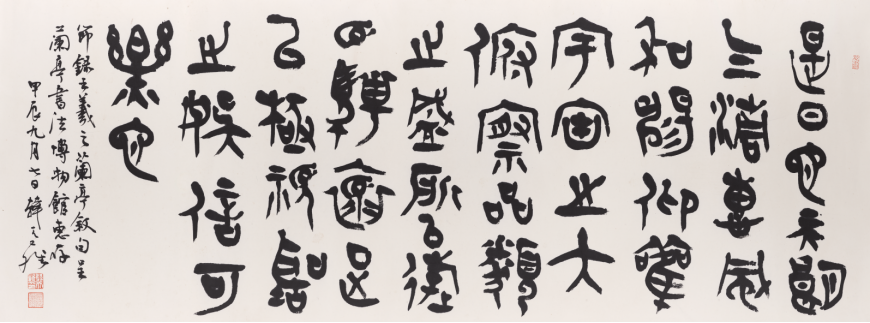 是日也天朗
气清惠風
和暢仰觀
宇宙之大
俯察品類
之盛所以遊
目騁懷足
以極視聽
之娛信可
樂也
節錄王羲之蘭亭敘句呈
蘭亭書法博物館惠存
甲辰九月七日韓天衡